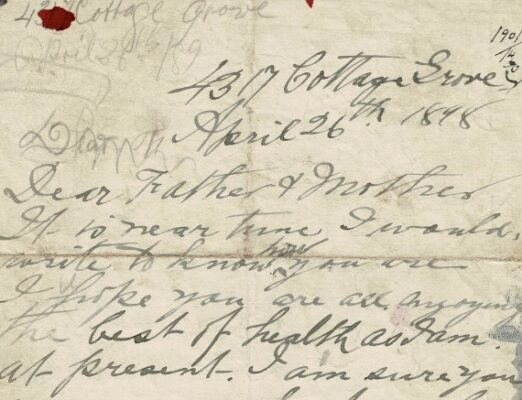 43 Cottage Grove
April 2
1901
14
4317 Cottage Grove
April 26th 1898
Dear
Dear Father & Mother
It is near time I would
write to know how you are
I hope you are all anyoying
the best of health as I am
at present. I am sure you